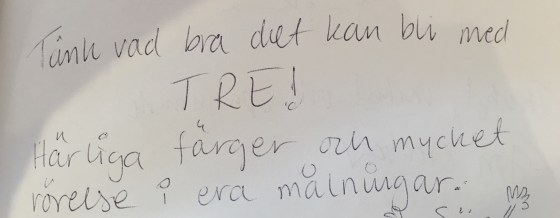 Tänk vad bra det kan bli med
TRE!
Härliga färger och mycket
rörelse i era målningar.